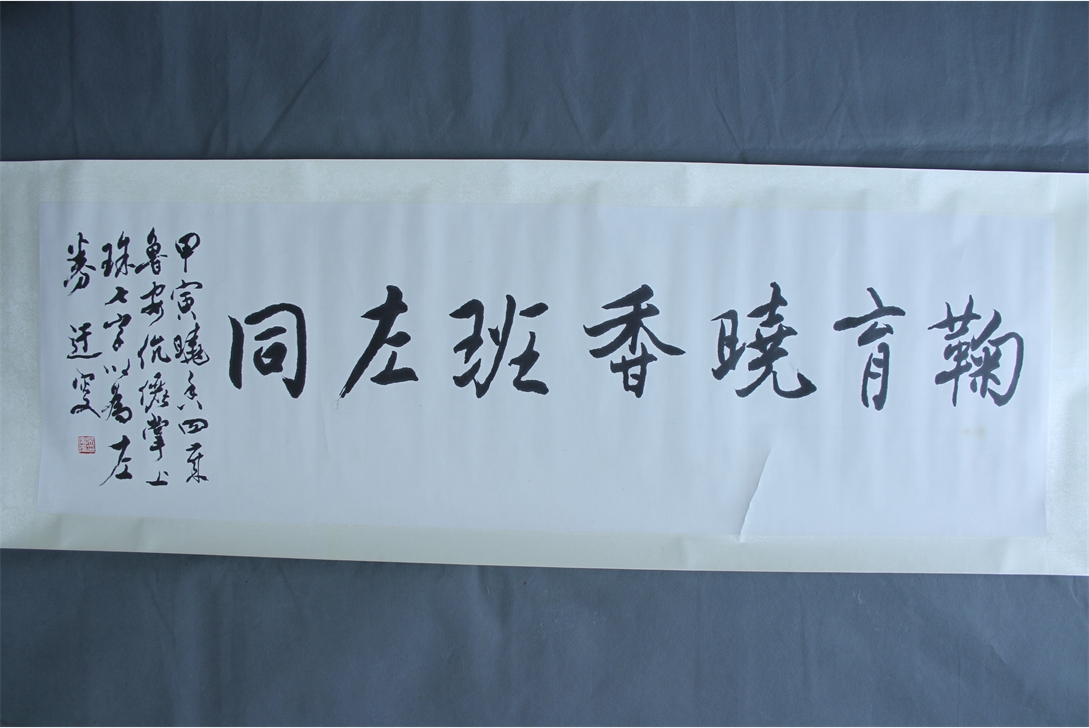 鞠育曉香班左同
甲寅曉香四
魯安伉儷掌上
珠七字以為左
券 迂叟